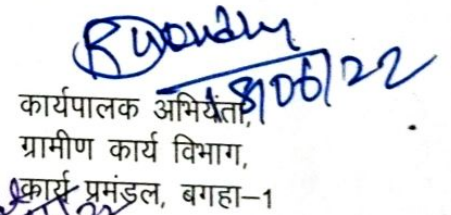 18/06/22
कार्यपालक अभियंता,
ग्रामीण कार्य विभाग,
कार्य प्रमंडल, बगहा-1